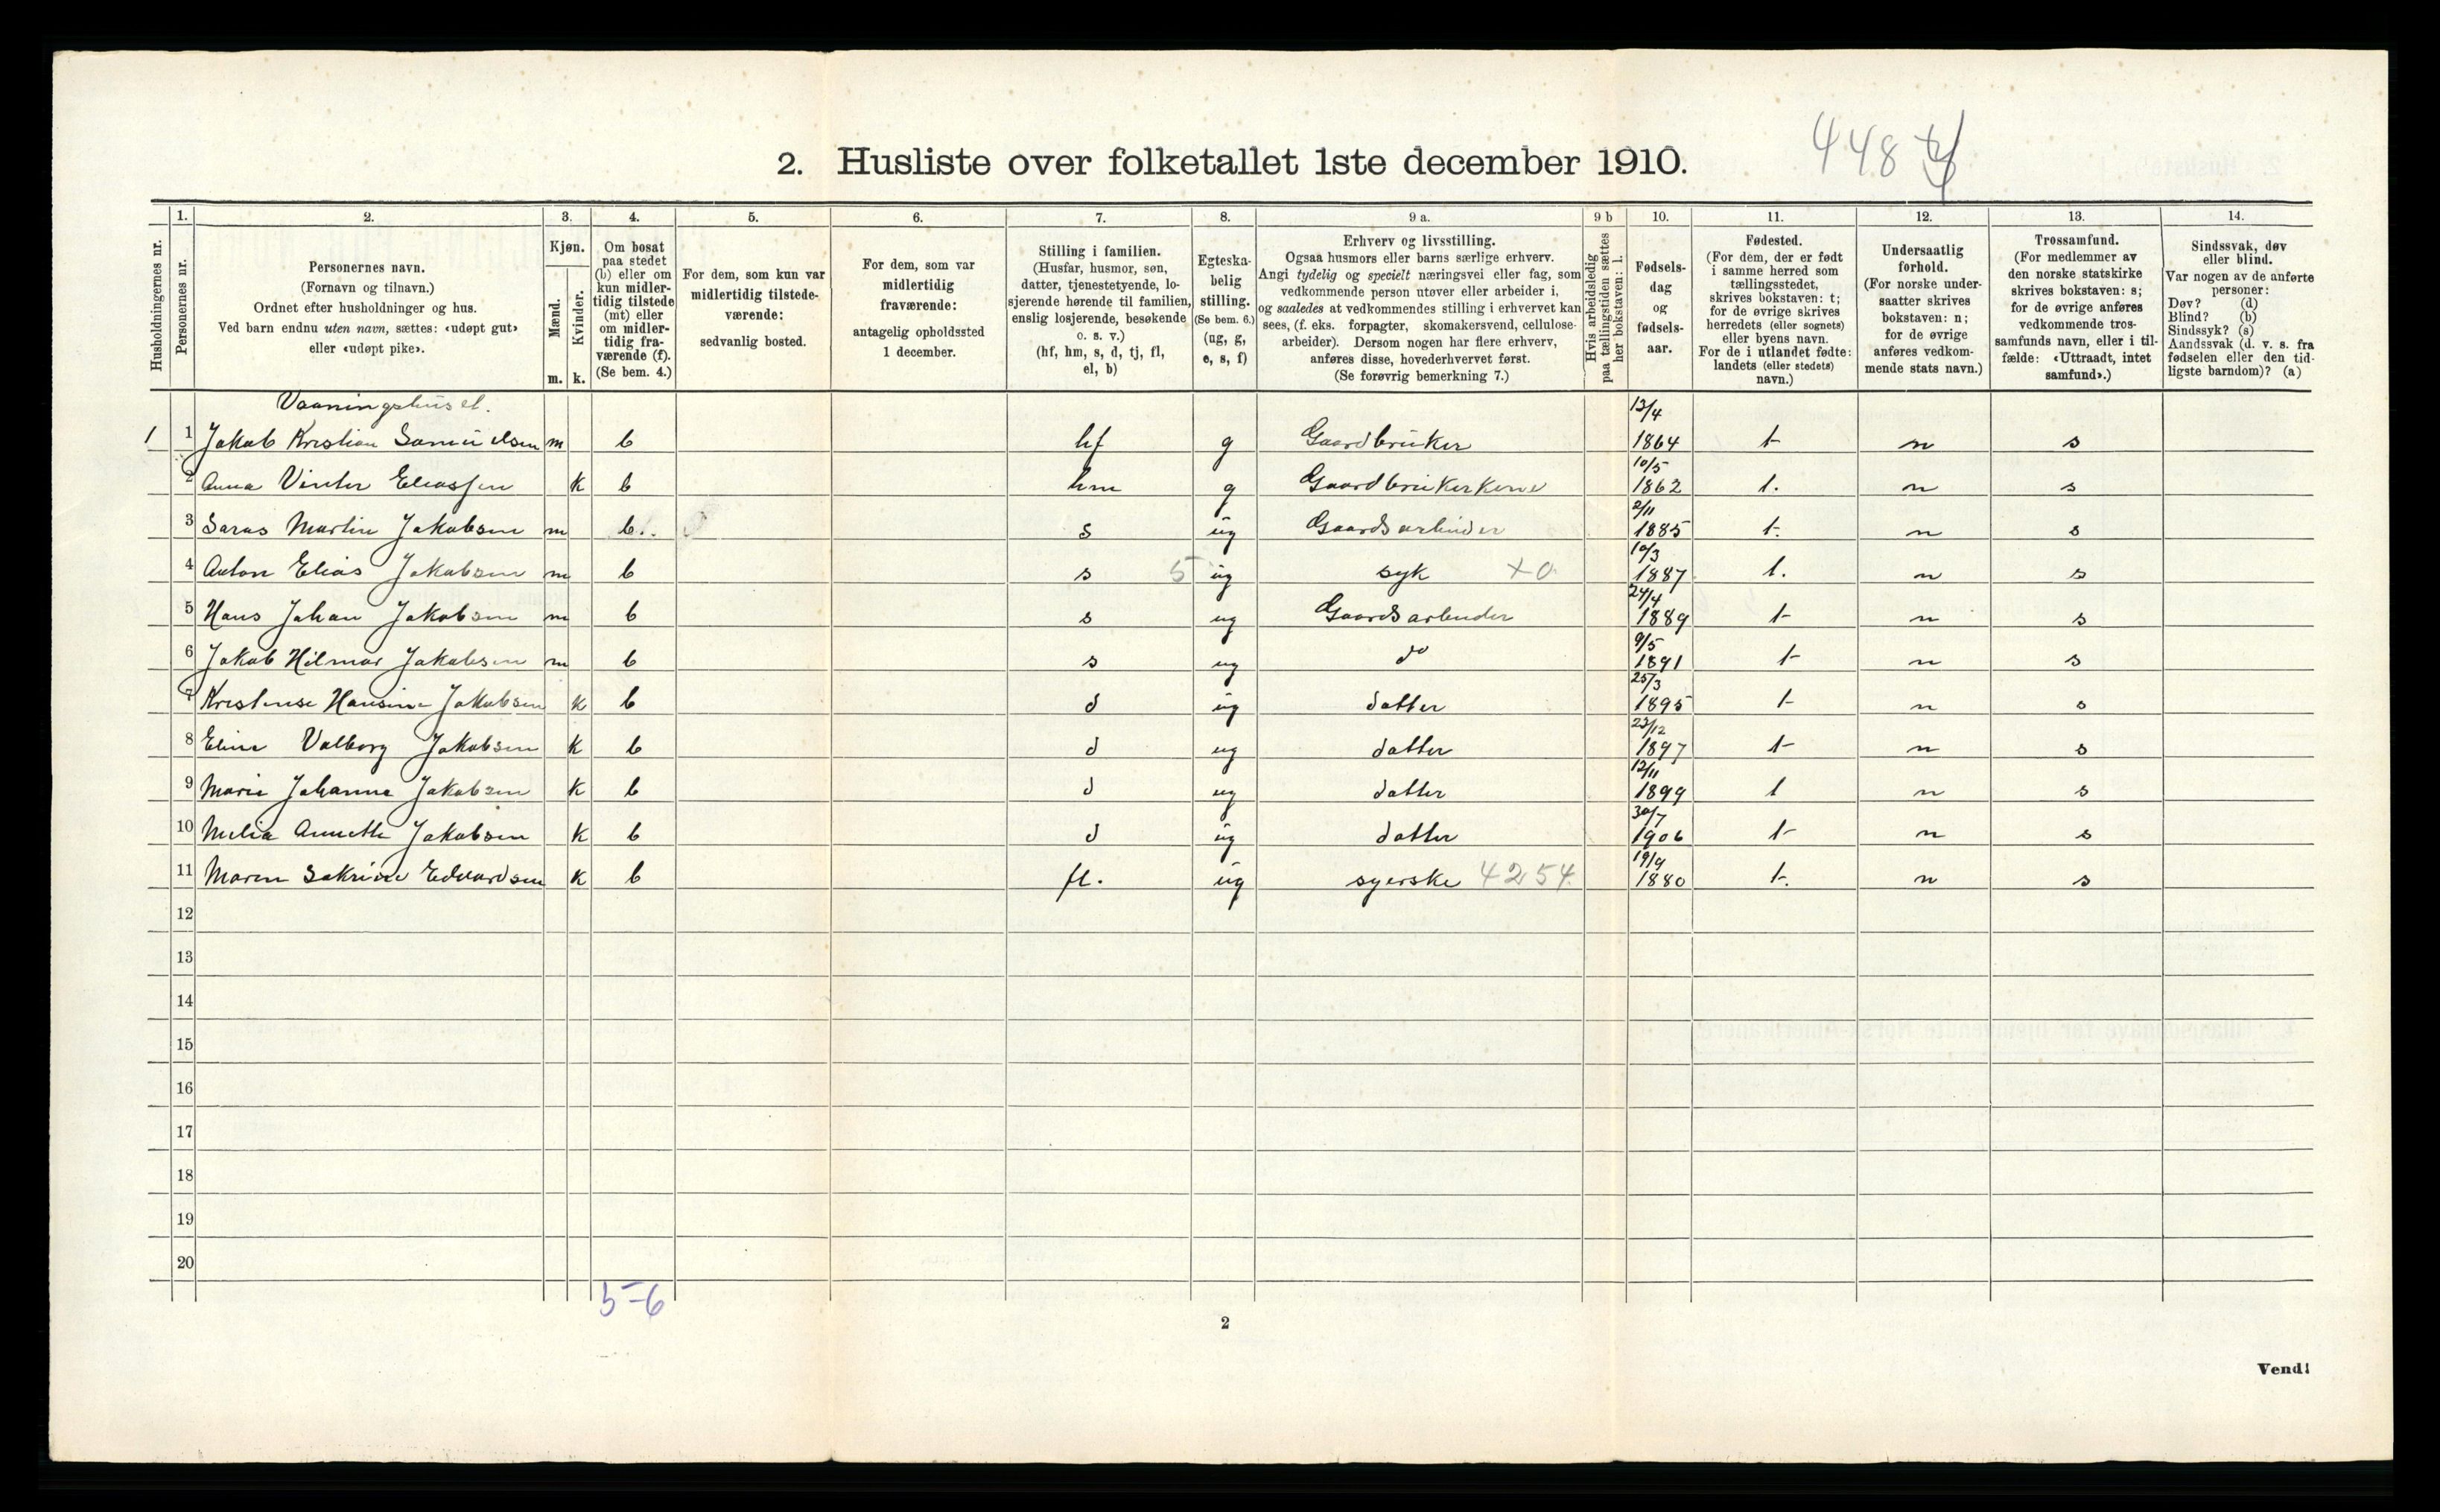 2. Husliste over folketallet 1ste december 1910.
448
1. 2. 3. 4. 5. 6. 7. 8. 9 a. 9 b 10. 11. 12. 13. 14.
Husholdningernes nr.
Personernes nr.
Personernes navn.
(Fornavn og tilnavn.)
Ordnet efter husholdninger og hus.
Ved barn endnu uten navn, sættes: «udøpt gut»
eller «udøpt pike».
Kjøn.
Mænd.
Kvinder.
m. k.
Om bosat
paa stedet
(b) eller om
kun midler-
tidig tilstede
(mt) eller
om midler-
tidig fra-
værende (f).
(Se bem. 4.)
For dem, som kun var
midlertidig tilstede-
værende:
sedvanlig bosted.
For dem, som var
midlertidig
fraværende:
antagelig opholdssted
1 december.
Stilling i familien.
(Husfar, husmor, søn,
datter, tjenestetyende, lo-
sjerende hørende til familien,
enslig losjerende, besøkende
o. s. v.)
(hf, hm, s, d, tj, fl,
el, b)
Egteska-
belig
stilling.
(Se bem. 6.)
(ug, g,
e, s, f)
Erhverv og livsstilling.
Ogsaa husmors eller barns særlige erhverv.
Angi tydelig og specielt næringsvei eller fag, som
vedkommende person utøver eller arbeider i,
og saaledes at vedkommendes stilling i erhvervet kan
sees, (f. eks. forpagter, skomakersvend, cellulose-
arbeider). Dersom nogen har flere erhverv,
anføres disse, hovederhvervet først.
(Se forøvrig bemerkning 7.)
Hvis arbeidsledig
paa tællingstiden sættes
her bokstaven: l.
Fødsels-
dag
og
fødsels-
aar.
Fødested.
(For dem, der er født
i samme herred som
tællingsstedet,
skrives bokstaven: t;
for de øvrige skrives
herredets (eller sognets)
eller byens navn.
For de i utlandet fødte:
landets (eller stedets)
navn.)
Undersaatlig
forhold.
(For norske under-
saatter skrives
bokstaven: n;
for de øvrige
anføres vedkom-
mende stats navn.)
Trossamfund.
(For medlemmer av
den norske statskirke
skrives bokstaven: s;
for de øvrige anføres
vedkommende tros-
samfunds navn, eller i til-
fælde: «Uttraadt, intet
samfund».)
Sindssvak, døv
eller blind.
Var nogen av de anførte
personer:
Døv? (d)
Blind? (b)
Sindssyk? (s)
Aandssvak (d. v. s. fra
fødselen eller den tid-
ligste barndom)? (a)
Vaaningshuset.
1 1 Jakob Kristian Samuelsen m b hf g Gaardbruker 13/4 1864 t n s
2 Anna Vinter Eliassen k b hm g Gaardbrukerkone 10/5 1862 t. n s
3 Saras Martin Jakobsen m b. s ug Gaardsarbeider 2/11 1885 t. n s
4 Anton Elias Jakobsen m b s 5 ug syk +0 10/3 1887 t. n s
5 Hans Johan Jakobsen m b s ug Gaardsarbeider 24/4 1889 t n s
6 Jakob Hilmar Jakobsen m b s ug do 9/5 1891 t n s
7 Kristense Hansine Jakobsen k b d ug datter 25/3 1895 t n s
8 Eline Valborg Jakobsen k b d ug datter 23/12 1897 t n s
9 Marie Johanne Jakobsen k b d ug datter 12/11 1899 t n s
10 Melia Annette Jakobsen k b d ug datter 30/7 1906 t n s
11 Maren Sakrine Edvardsen k b fl. ug syerske 4254. 19/9 1880 t. n s
12
13
14
15
16
17
18
19
20
5-6
2
Vend!